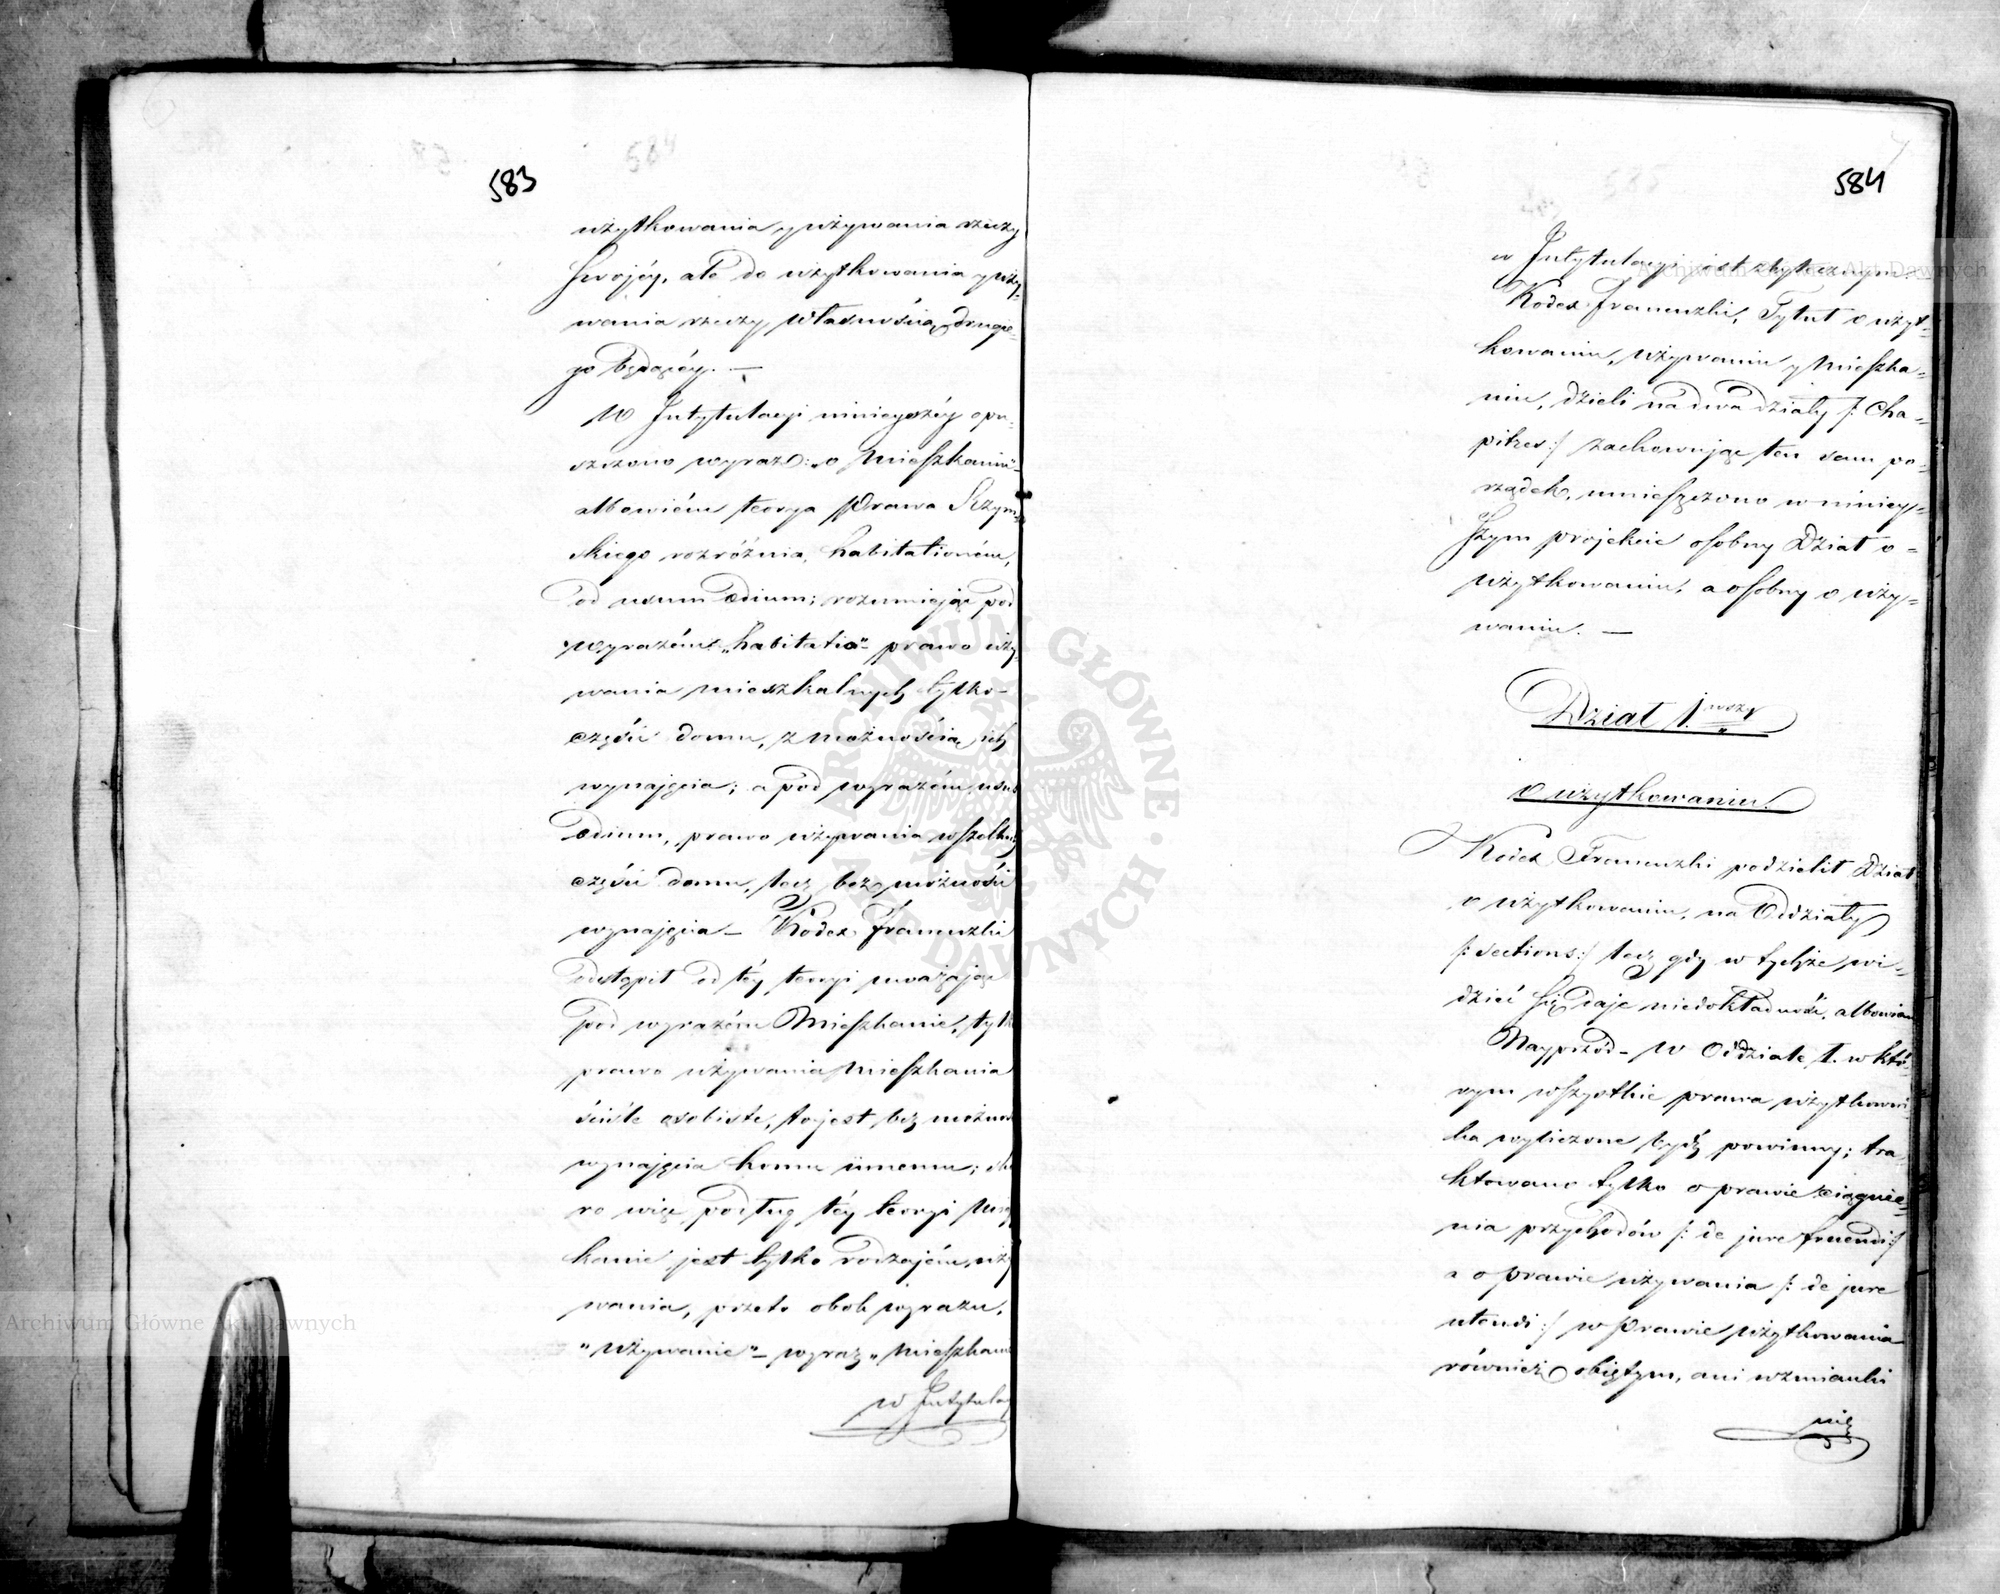 583
użytkowania y używania rzeczy
swojéy, ale do użytkowania y uży-
wania rzeczy, własnością drugie-
go będącéy. —
W Intytulacyi ninieyszéy opu-
szczono wyraz: „o Mieszkaniu"
albowiém teorya Prawa Rzym-
skiego rozróżnia, habitationém,
od usum ædium; rozumiejąc pod
wyrazém „habitatio" prawo uży-
wania mieszkalnych tylko
części domu, z możnością ich
wynajęcia; a pod wyrazém usus
ædium, prawo używania wszelkiéy
części domu, lecz bez możności
wynajęcia – Kodex Francuzki
odstąpił od téy teoryi uważając
pod wyrazém Mieszkanie, tylk
prawo używania mieszkania
ściśle osobiste, to jest bez możno
wynajęcia komu innemu; sk
ro więc podług téy teoryi Miesz
kanie jest tylko rodzajém uży
wania, przeto obok wyrazu,
"Używanie" – wyraz „Mieszkani
w Intytula
584
w Intytulacyi jest zbytecznym.
Kodex Francuzki, Tytuł o użyt-
kowaniu, używaniu y Mieszka-
niu, dzieli na dwa działy /: Cha-
pitres:/ zachowując ten sam po-
rządek, umieszczono w niniey-
szym projekcie osobny Dział o
użytkowaniu, a osobny o uży-
waniu. —
Dział 1.wszy
O użytkowaniu.
Kodex Francuzki podzielił Dział
o użytkowaniu, na Oddziały
/: sections:/ lecz gdy w tychże wi-
dzieć się daje niedokładność, albowiem
Nayprzód – w Oddziale 1. w któ-
rym wszystkie prawa użytkowni-
ka wyliczone bydź powinny; tra-
ktowano tylko o prawie ciągnie-
nia przychodów /: de jure fruendi:/
a o prawie używania /: de jure
utendi:/ w prawie użytkowania
również obiętym, ani wzmianki
nie
Archiwum Główne Akt Dawnych
Archiwum Główne Akt Dawnych
ARCHIWUM GŁÓWNE AKT DAWNYCH